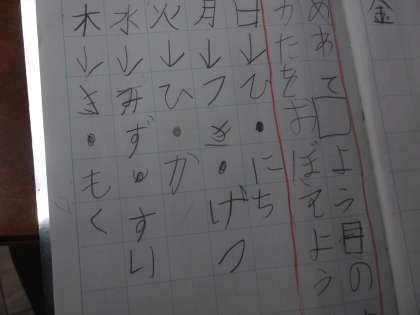 金
めあて□よう日の
かたをおぼえよう
日↓ひ・にち
月↓つき・げつ
火↓ひ・か
水↓みず・すい
木↓き・もく